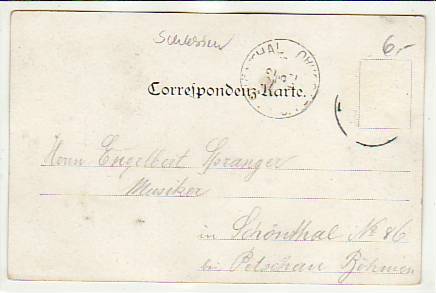 Schlesien
6.-
Correspondenz-Karte.
Herrn Engelbert Spranger
Musiker
in Schönthal No 86
bei Petschau Böhmen